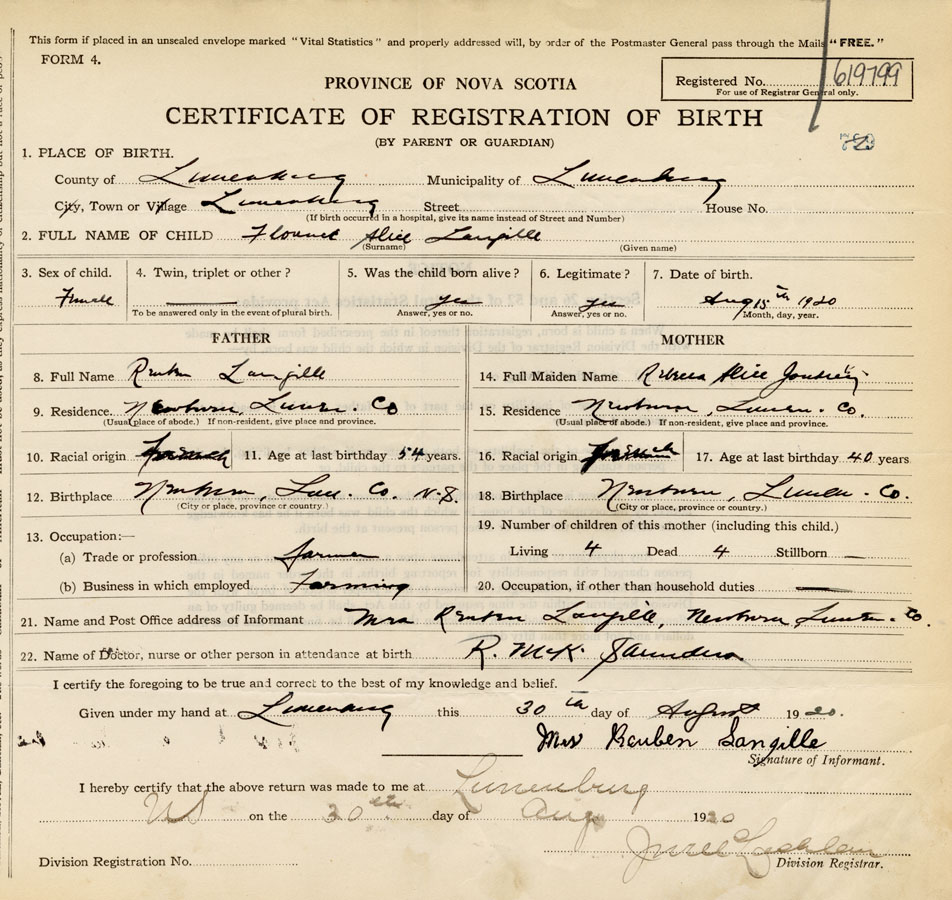 This form if placed in an unsealed envelope marked "Vital Statistics" and properly addressed will, by order of the Postmaster General pass through the Mails "FREE."
FORM 4.
Registered No. 619799
For use of Registrar General only.
PROVINCE OF NOVA SCOTIA
CERTIFICATE OF REGISTRATION OF BIRTH
(BY PARENT OR GUARDIAN)
1. PLACE OF BIRTH.
County of Lunenburg Municipality of Lunenburg
City, Town or Village Lunenburg Street House No.
(If birth occurred in a hospital, give its name instead of Street and Number)
2. FULL NAME OF CHILD Alice Langille
(Surname) (Given name)
3. Sex of child. 4. Twin, triplet or other? 5. Was the child born alive? 6. Legitimate? 7. Date of birth.
Female yes yes Aug 15th 1920
To be answered only in the event of plural birth. Answer, yes or no. Answer, yes or no. Month, day, year.
FATHER MOTHER
8. Full Name Reuben Langille 14. Full Maiden Name Alice
9. Residence. Newburn, Lunen. Co 15. Residence Newburn, Lunen. Co.
(Usual place of abode.) If non-resident, give place and province. (Usual place of abode.) If non-resident, give place and province.
10. Racial origin 11. Age at last birthday 54 years. 16. Racial origin 17. Age at last birthday 40 years
12. Birthplace Newburn, Lun. Co. N.S. 18. Birthplace Newburn, Lunen. Co.
(City or place, province or country.) (City or place, province or country.)
13. Occupation:— 19. Number of children of this mother (including this child.)
(a) Trade or profession farmer Living 4 Dead 4 Stillborn
(b) Business in which employed Farming 20. Occupation, if other than household duties
21. Name and Post Office address of Informant Mrs Reuben Langille, Newburn Lunen. Co.
22. Name of Doctor, nurse or other person in attendance at birth R. McK. Saunders
I certify the foregoing to be true and correct to the best of my knowledge and belief.
Given under my hand at Lunenburg this 30th day of August 1920.
Mrs Reuben Langille
Signature of Informant.
I hereby certify that the above return was made to me at Lunenburg
NS on the 30th day of Aug 1920
Division Registration No. Division Registrar.